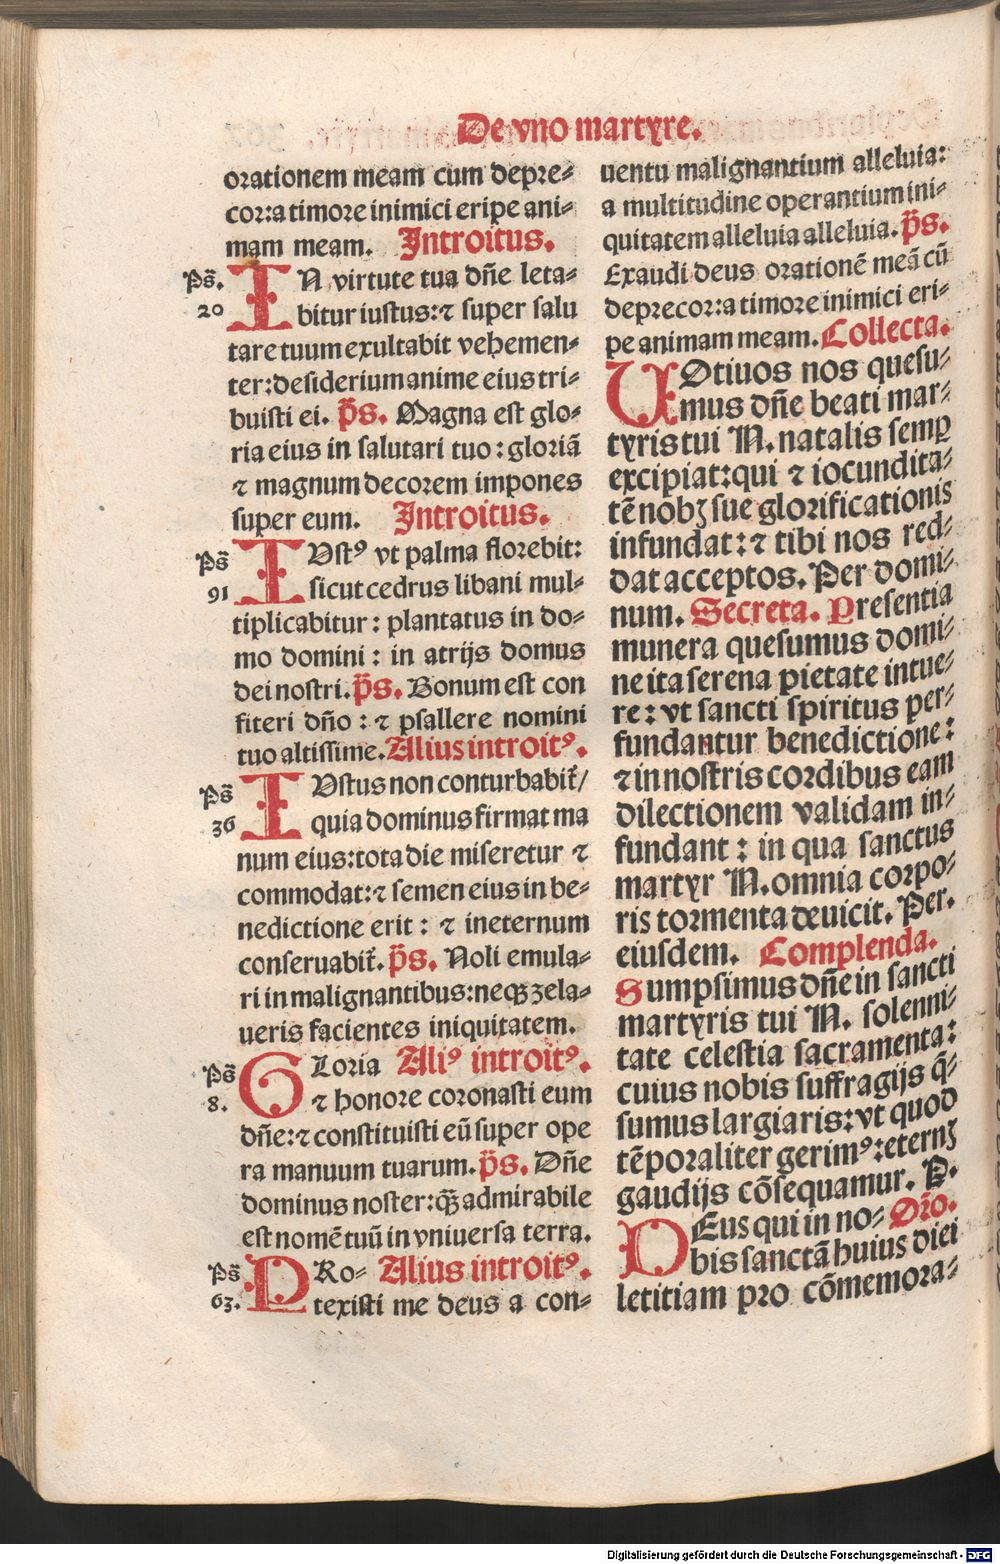 De vno martyre.
orationem meam cum depre⸗
cor:a timore inimici eripe ani⸗
mam meam. Introitus.
Ps̄. IN virtute tua dñe leta⸗
20 bitur iustus:⁊ super salu
tare tuum exultabit vehemen⸗
ter:desiderium anime eius tri⸗
buisti ei. p̄s. Magna est glo⸗
ria eius in salutari tuo : gloriā
⁊ magnum decorem impones
super eum. Introitus.
Ps̄ IVstꝰ vt palma florebit:
91 sicut cedrus libani mul⸗
tiplicabitur : plantatus in do⸗
mo domini : in atrijs domus
dei nostri. p̄s. Bonum est con
fiteri dño : ⁊ psallere nomini
tuo altissime. Alius introitꝰ.
Ps̄ IVstus non conturbabit̄/
36 quia dominus firmat ma
num eius:tota die miseretur ⁊
commodat:⁊ semen eius in be⸗
nedictione erit : ⁊ ineternum
conseruabit̄. p̄s. Noli emula⸗
ri in malignantibus:neqꝫ zela⸗
ueris facientes iniquitatem.
Ps̄ GLoria Aliꝰ introitꝰ.
8. ⁊ honore coronasti eum
dñe:⁊ constituisti eū super ope
ra manuum tuarum. p̄s. Dñe
dominus noster:qꝫ̄ admirabile
est nomē tuū in vniuersa terra.
Ps̄ PRo⸗ Alius introitꝰ.
63. texisti me deus a con⸗
uentu malignantium alleluia:
a multitudine operantium ini⸗
quitatem alleluia alleluia. p̄s.
Exaudi deus orationē meā cū
deprecor:a timore inimici eri⸗
pe animam meam. Collecta.
VOtiuos nos quesu⸗
mus dñe beati mar⸗
tyris tui N. natalis semꝑ
excipiat:qui ⁊ iocundita⸗
tē nobꝫ sue glorificationis
infundat: ⁊ tibi nos red⸗
dat acceptos. Per domi⸗
num. Secreta. Presentia
munera quesumus domi⸗
ne ita serena pietate intue⸗
re : vt sancti spiritus per⸗
fundantur benedictione:
⁊ in nostris cordibus eam
dilectionem validam in⸗
fundant : in qua sanctus
martyr N. omnia corpo⸗
ris tormenta deuicit. Per.
eiusdem. Complenda.
Sumpsimus dñe in sancti
martyris tui N. solenni⸗
tate celestia sacramenta:
cuius nobis suffragijs q̄⸗
sumus largiaris:vt quod
tēporaliter gerimꝰ:eternꝫ
gaudijs cōsequamur. P.
DEus qui in no⸗ Or̄o.
bis sanctā huius diei
letitiam pro cōmemora⸗
Digitalisierung gefördert durch die Deutsche Forschungsgemeinschaft - DFG